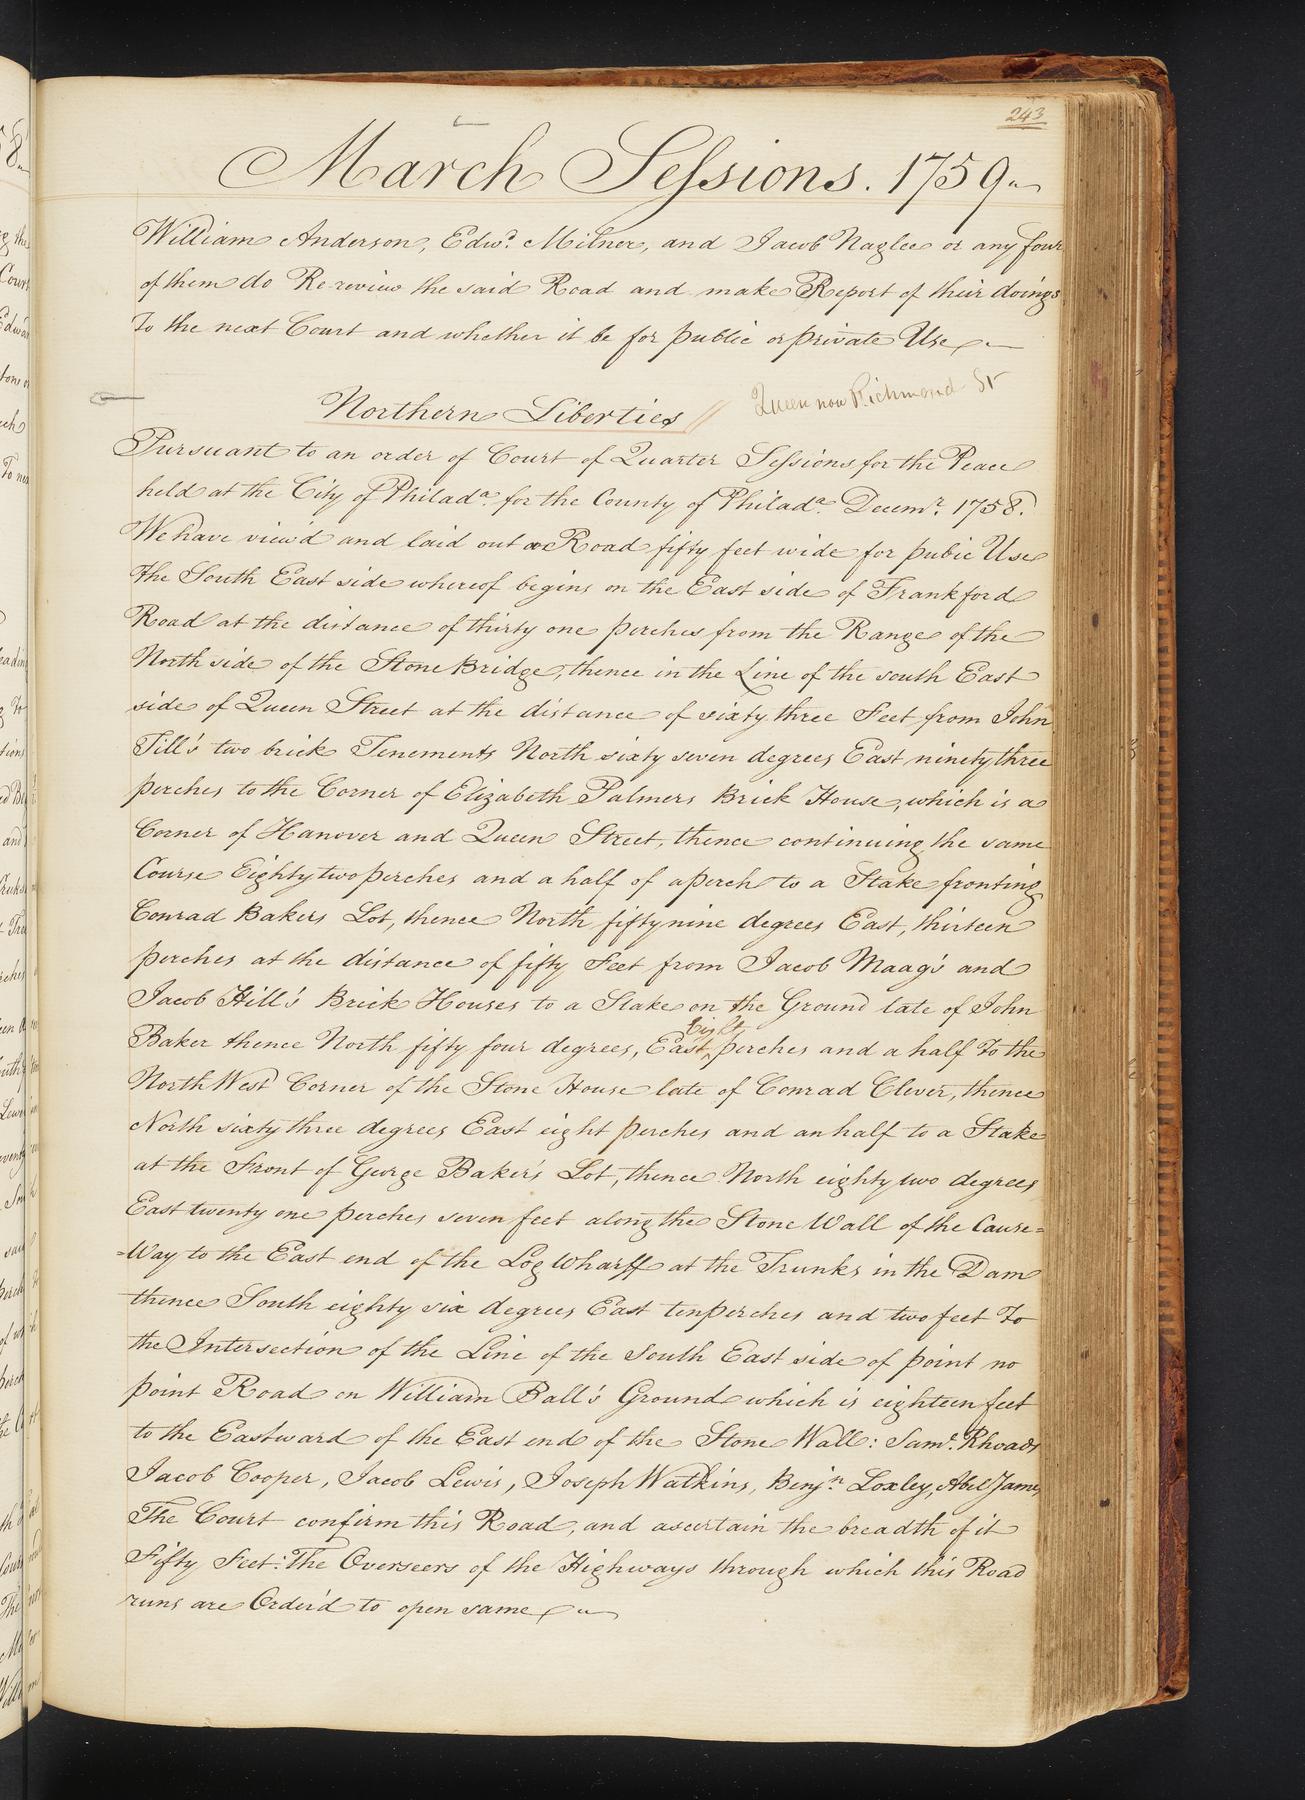 243
March Sessions. 1759
William Anderson, Edwd. Milner, and Jacob Naglee or any four
of them do Re-review the said Road and make Report of their doings
To the next Court and whether it be for public or private Use
Northern Liberties // Queen now Richmond St
Pursuant to an order of Court of Quarter Sessions for the Peace
held at the City of Philada. for the County of Philada. Decemr. 1758.
We have view'd and laid out a Road fifty feet wide for pubic Use
the South East side whereof begins on the East side of Frankford
Road at the distance of thirty one perches from the Range of the
North side of the Stone Bridge, thence in the Line of the south East
side of Queen Street at the distance of sixty three Feet from John
Till's two brick Tenements North sixty seven degrees East ninety three
perches to the Corner of Elizabeth Palmers Brick House, which is a
Corner of Hanover and Queen Street, thence continuing the same
Course Eighty two perches and a half of a perch to a Stake fronting
Conrad Bakers Lot, thence North fifty nine degrees East, thirteen
perches at the distance of fifty Feet from Jacob Maag's and
Jacob Hill's Brick Houses to a Stake on the Ground late of John
Baker thence North fifty four degrees, East Eight perches and a half To the
North West Corner of the Stone House late of Conrad Clever, thence
North sixty three degrees East eight perches and an half to a Stake
at the Front of George Baker's Lot, thence North eighty two degrees
East twenty one perches seven feet along the Stone Wall of the Cause=
=Way to the East end of the Log Wharff at the Trunks in the Dam
thence South eighty six degrees East ten perches and two feet To
the Intersection of the Line of the South East side of point no
point Road on William Ball's Ground which is eighteen feet
to the Eastward of the East end of the Stone Wall: Saml. Rhoads
Jacob Cooper, Jacob Lewis, Joseph Watkins, Benjn. Loxley, Abel James,
The Court confirm this Road, and ascertain the breadth of it
Fifty Feet: The Overseers of the Highways through which this Road
runs are Order'd to open same